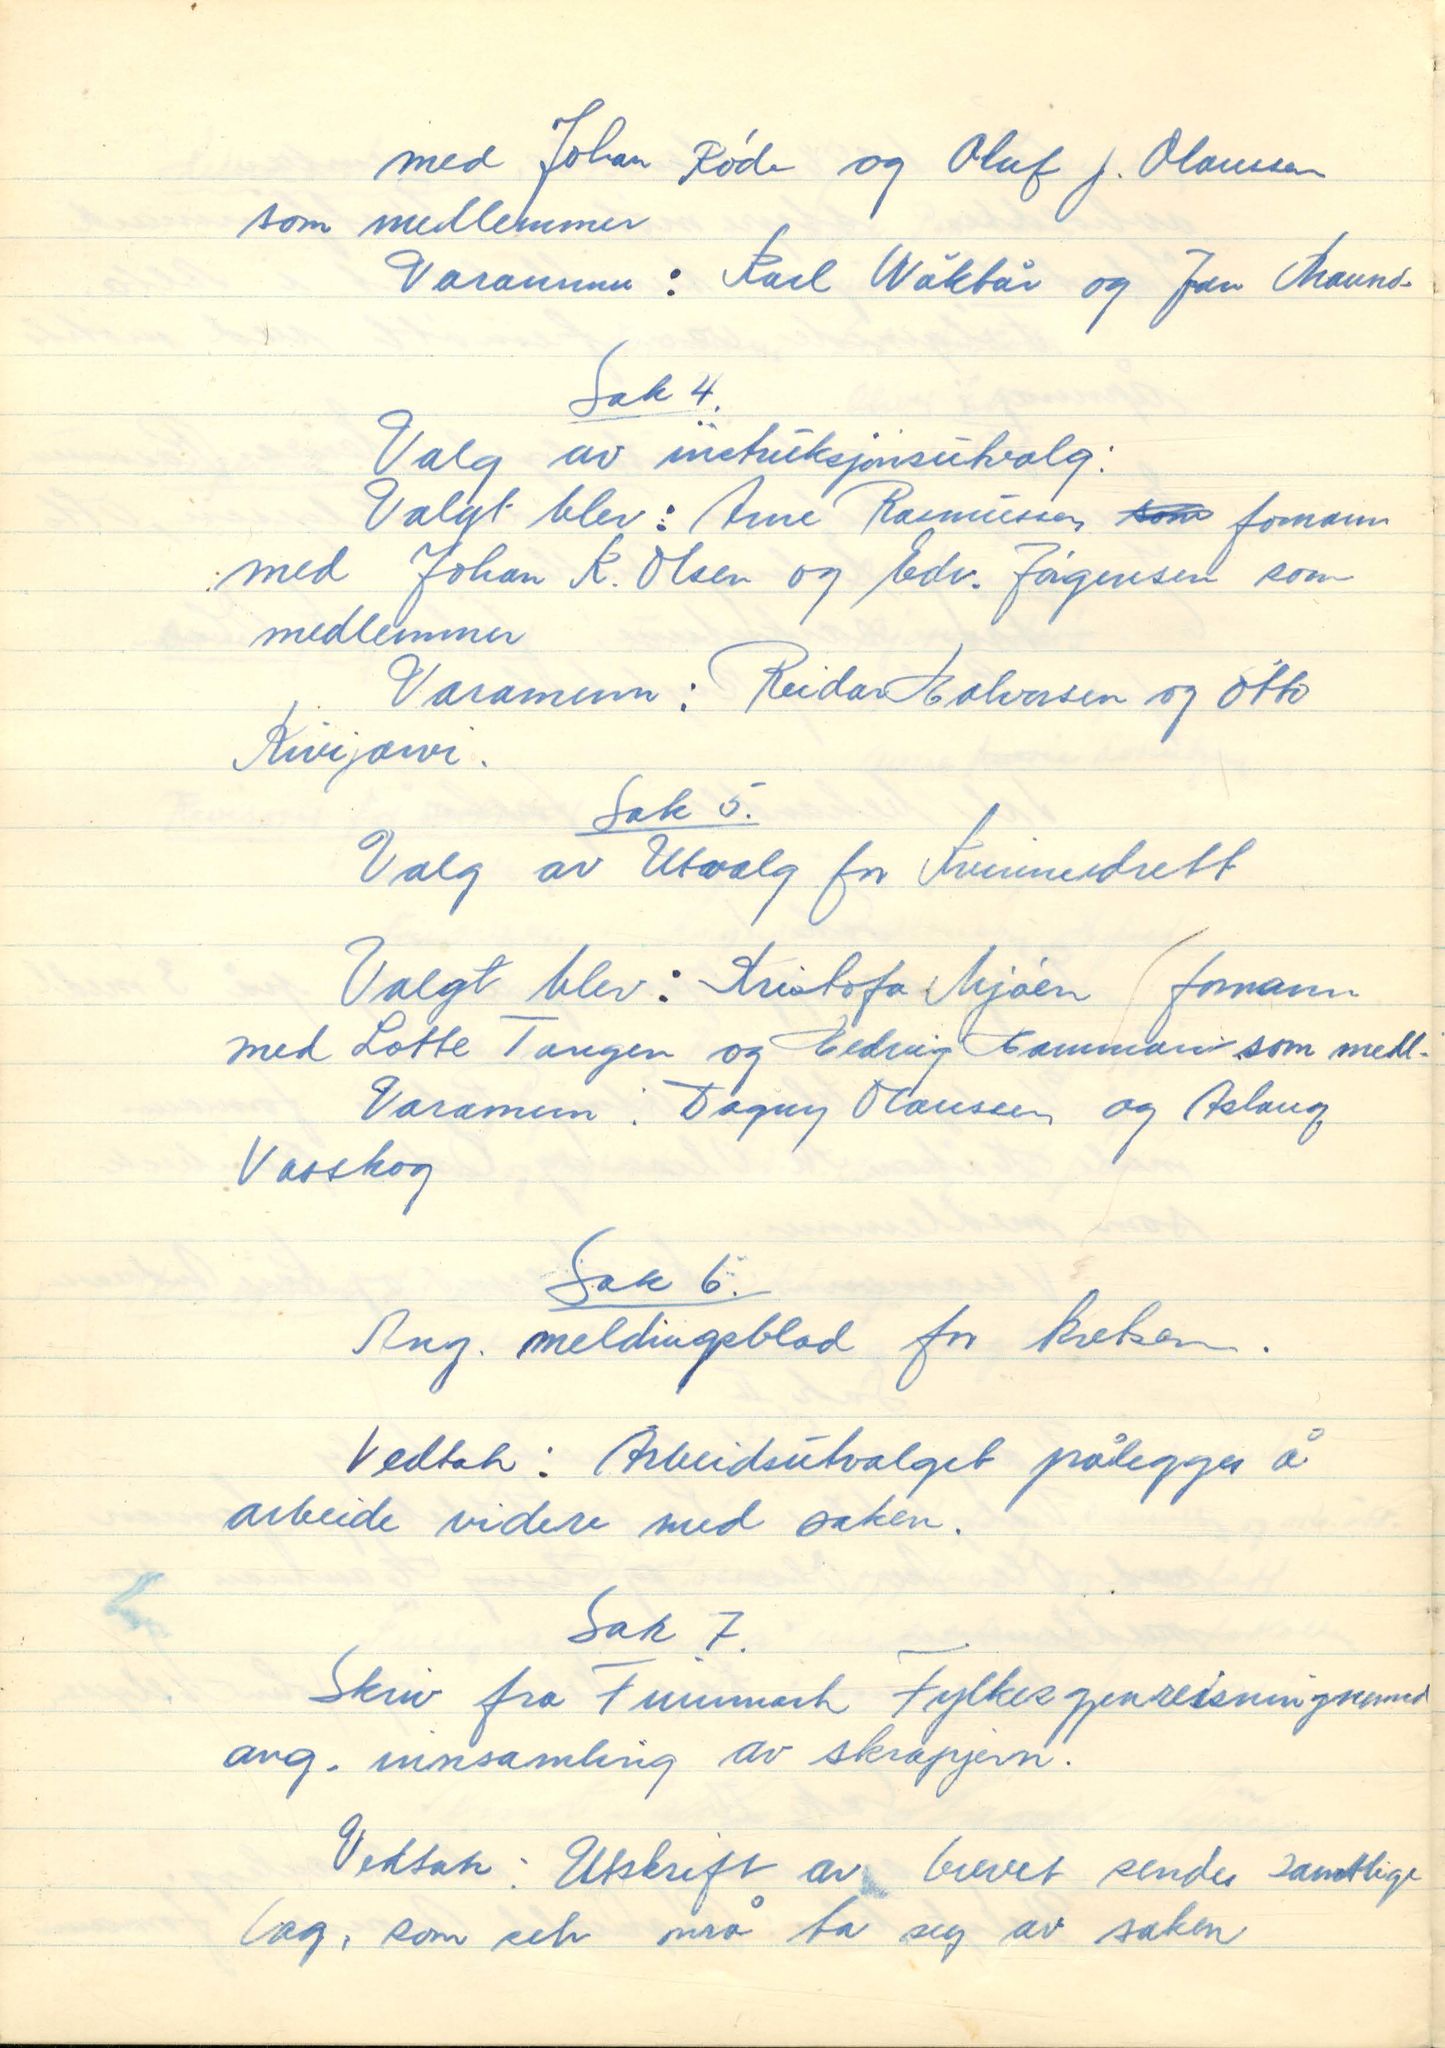 med Johan Röde og Oluf J. Olaussen
som medlemmer
Varamenn: Karl Wäktår og Jan
Sak 4.
Valg av instruksjonsutvalg:
Valgt blev: Arne Rasmussen som formann
med Johan K. Olsen og Edv. Jörgensen som
medlemmer
Varamenn: Reidar Halvorsen og Otto
Kivijarvi.
Sak 5.
Valg av Utvalg for Kvinneidrett
Valgt blev: Kristofa Mjøen formann
med Lotte Tangen og Hedvig Hammari som medl.
Varamenn: Dagny Olaussen og Aslaug
Vasskog
Sak 6.
Ang. meldingsblad for kretsen.
Vedtak: Arbeidsutvalget pålegges å
arbeide videre med saken.
Sak 7.
Skriv fra Finnmark Fylkesgjenreisningsnemnd
ang. innsamling av skrapjern.
Vedtak: Utskrift av brevet sendes samtlige
lag, som selv må ta seg av saken